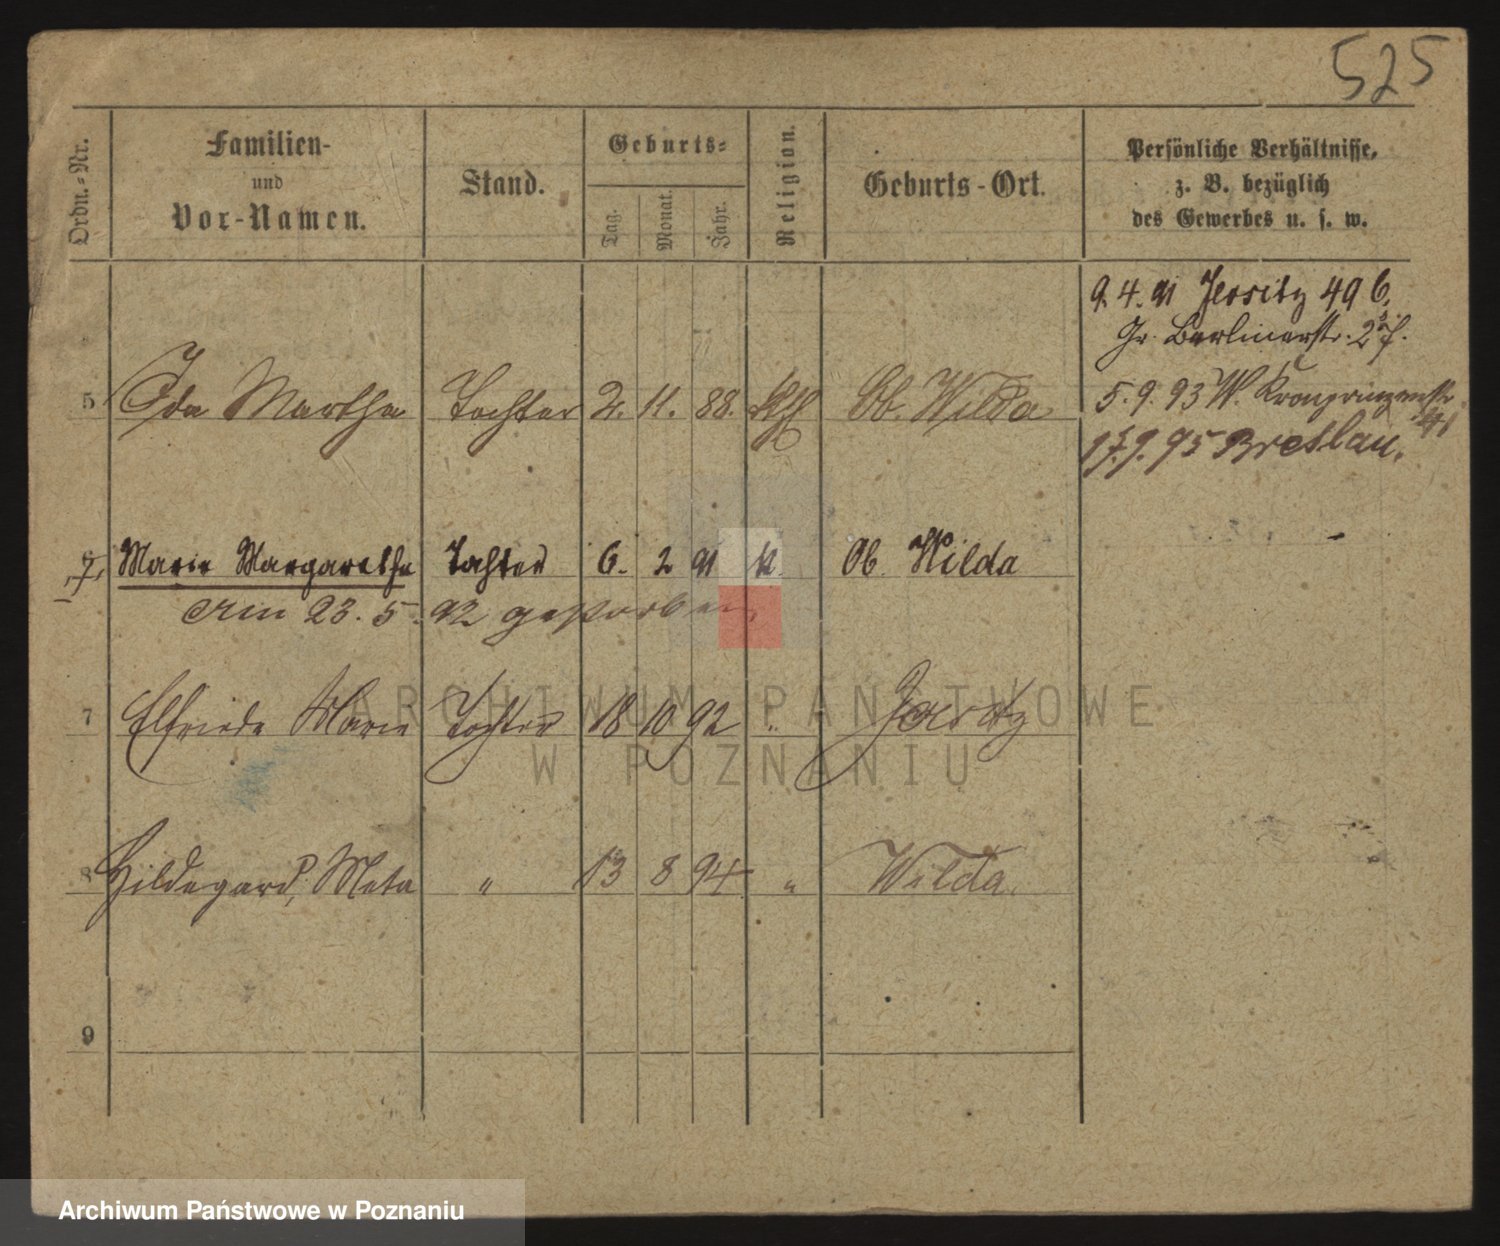 525
Ordn.-Nr.
Familien-
und
Vor-Namen.
Stand.
Geburts-
Tag.
Monat.
Jahr.
Religion.
Geburts-Ort.
Persönliche Verhältnisse,
z. B. bezüglich
des Gewerbes u. s. w.
9.4.91 Jersitz 49 b,
Gr. Berlinerstr.
5 Ida Martha Tochter 2. 11. 88. kth Ob. Wilda
5.9.93 W. Kronprinzenstr
9.95 Breslau.
Marie Margarethe Tochter 6. 2 91 k. Ob. Wilda
Am 23. 5. 92 gestorben.
7 Elfriede Marie Tochter 18 10 92 " Jersitz
8 Hildegard, Meta " 13 8 94 " Wilda.
9
ARCHIWUM PAŃSTWOWE
W POZNANIU
Archiwum Państwowe w Poznaniu